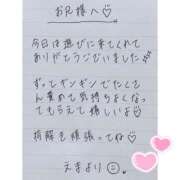 お兄様へ♡
今日は遊びに来てくれて
ありがとうございました
ずってギンギンでたくさ
ん責めて気持ちよくなっ
てもらえて嬉しいよ♡
構解を頑張ってね♡
えまより☺